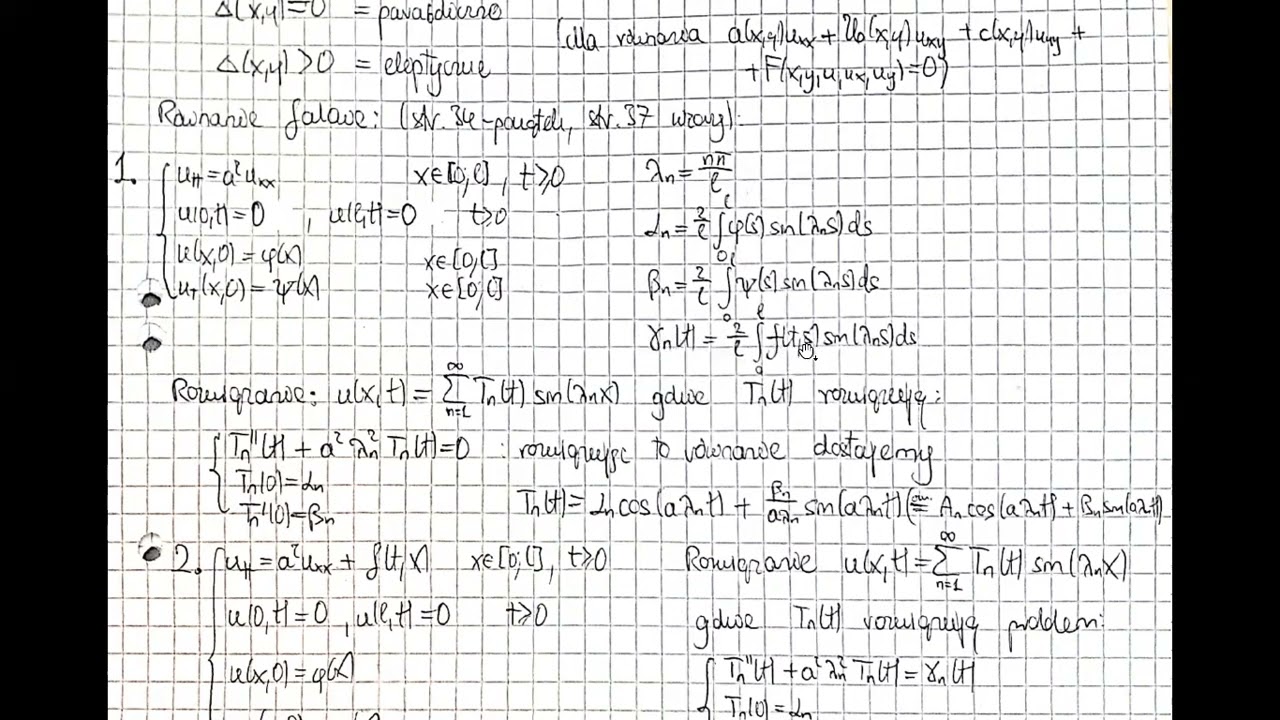 Δ(x,y)=0 = paraboliczne
Δ(x,y)>0 = eleptyczne
(dla równania a(x,y)uxx + 2b(x,y)uxy + c(x,y)uyy +
+F(x,y,u,ux,uy)=0)
Równanie falowe: (str. 34-początek, str. 37 wzory):
1. utt=a²uxx x∈[0,l], t≥0
u(0,t)=0 , u(l,t)=0 t≥0
u(x,0)=φ(x) x∈[0,l]
ut(x,0)=ψ(x) x∈[0,l]
λn = nπ/l
αn = 2/l ∫₀ˡ φ(s) sin(λns)ds
βn = 2/l ∫₀ˡ ψ(s) sin(λns)ds
γn(t) = 2/l ∫₀ˡ f(t,s) sin(λns)ds
Rozwiązanie: u(x,t) = ∑_{n=1}^{∞} Tn(t) sin(λnx) gdzie Tn(t) rozwiązują:
Tn''(t) + a²λn² Tn(t)=0 : rozwiązując to równanie dostajemy
Tn(0)=αn
Tn'(0)=βn
Tn(t)=αn cos(aλnt) + βn/aλn sin(aλnt) (= An cos(aλnt) + Bn sin(aλt)
2. utt=a²uxx + f(t,x) x∈[0,l], t≥0
u(0,t)=0, u(l,t)=0 t≥0
u(x,0)=φ(x)
Rozwiązanie u(x,t)=∑_{n=1}^{∞} Tn(t) sin(λnx)
gdzie Tn(t) rozwiązują problem:
Tn''(t) + a²λn² Tn(t) = γn(t)
Tn(0)=αn